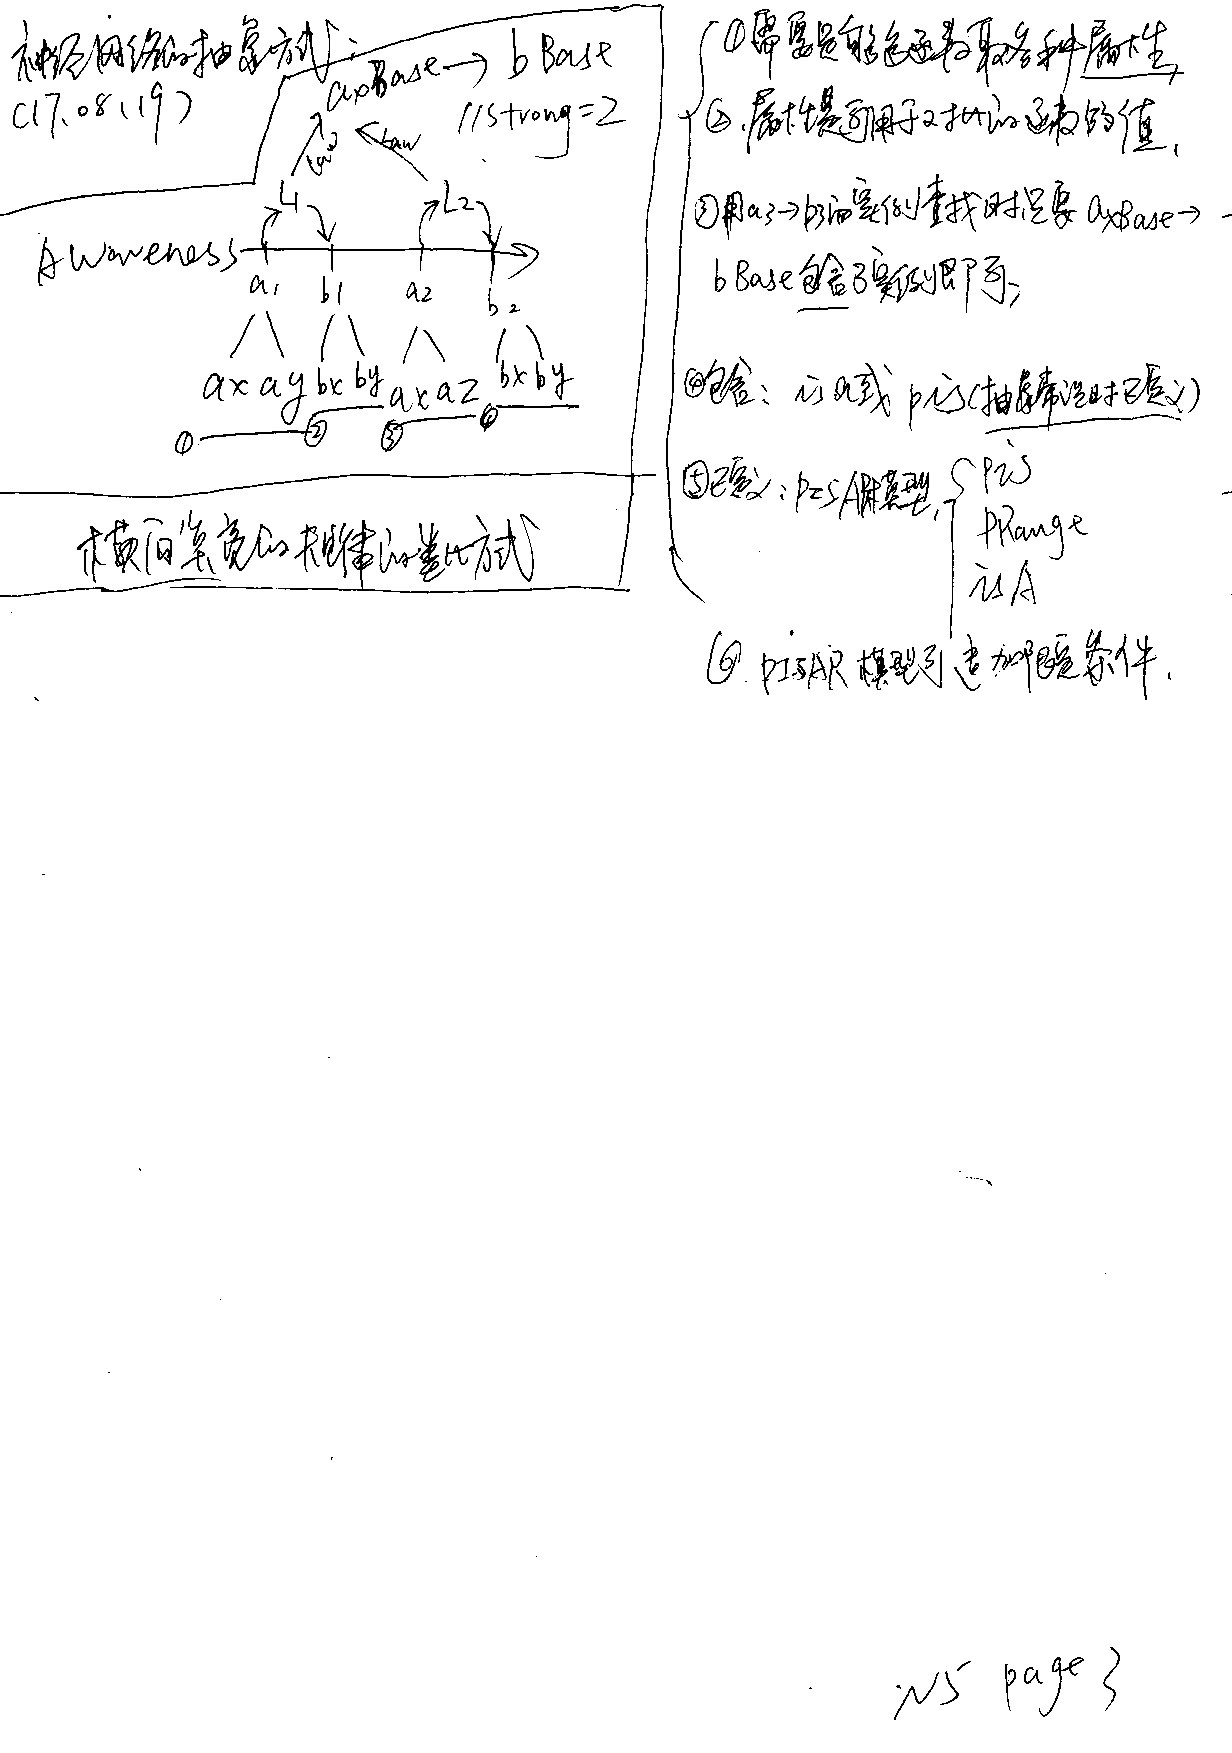 神经网络的抽象方式:
(17.08.19)
axBase → bBase
//Strong=2
Law
Law
L1
L2
Awareness
a1 b1 a2 b2
ax ay bx by ax az bx by
① ② ③ ④
横向宽的规律的类比方式
① 需要是能函数取各种属性,
② 属性是可用于对比的函数的值,
③ 用a3→b3的实例查找时只要axBase→
bBase包含了实例即可,
④ 包含: is a或pis(抽象常识时已定义)
⑤ 已定义: PISAR模型,
pis
PRange
isA
⑥ PISAR模型可追加限定条件.
N5 page 3